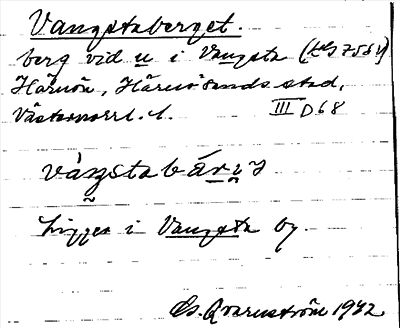 Vangstaberget.
berg vid u i Vangsta (
Härnön, Härnösands stad,
Västernorrl. l. III D 68
Ligger i Vangsta by.
Qvarnström 1932